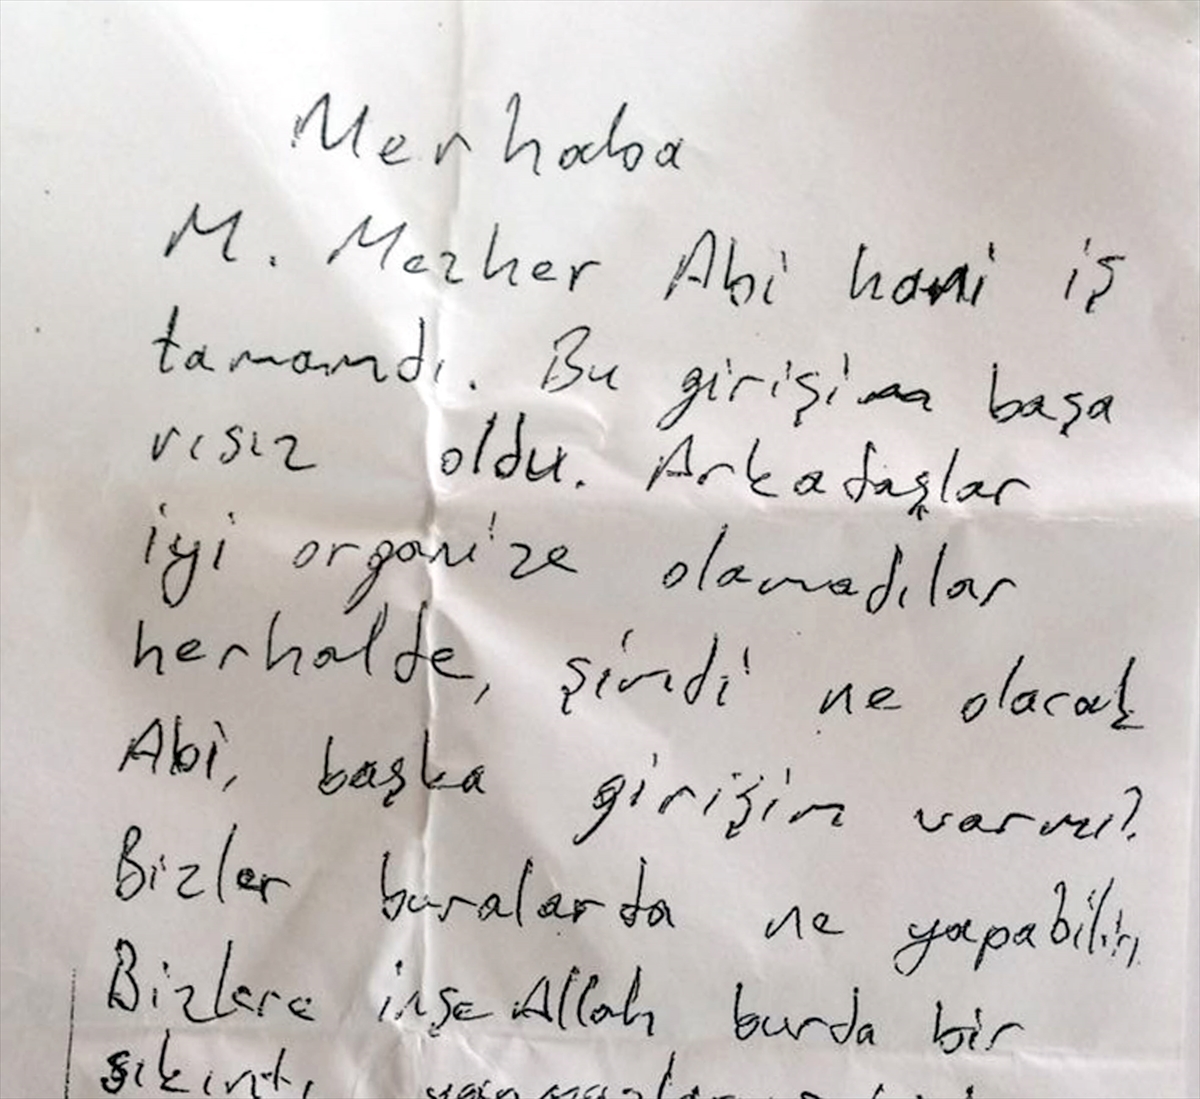 Merhaba
M. Mezher Abi hani iş
tamamdı. Bu girişim başa
rısız oldu. Arkadaşlar
iyi organize olamadılar
herhalde, şimdi ne olacak
Abi, başka girişim varmı?
Bizler buralarda ne yapabilir
Bizlere inşeAllah burda bir
sıkıntı